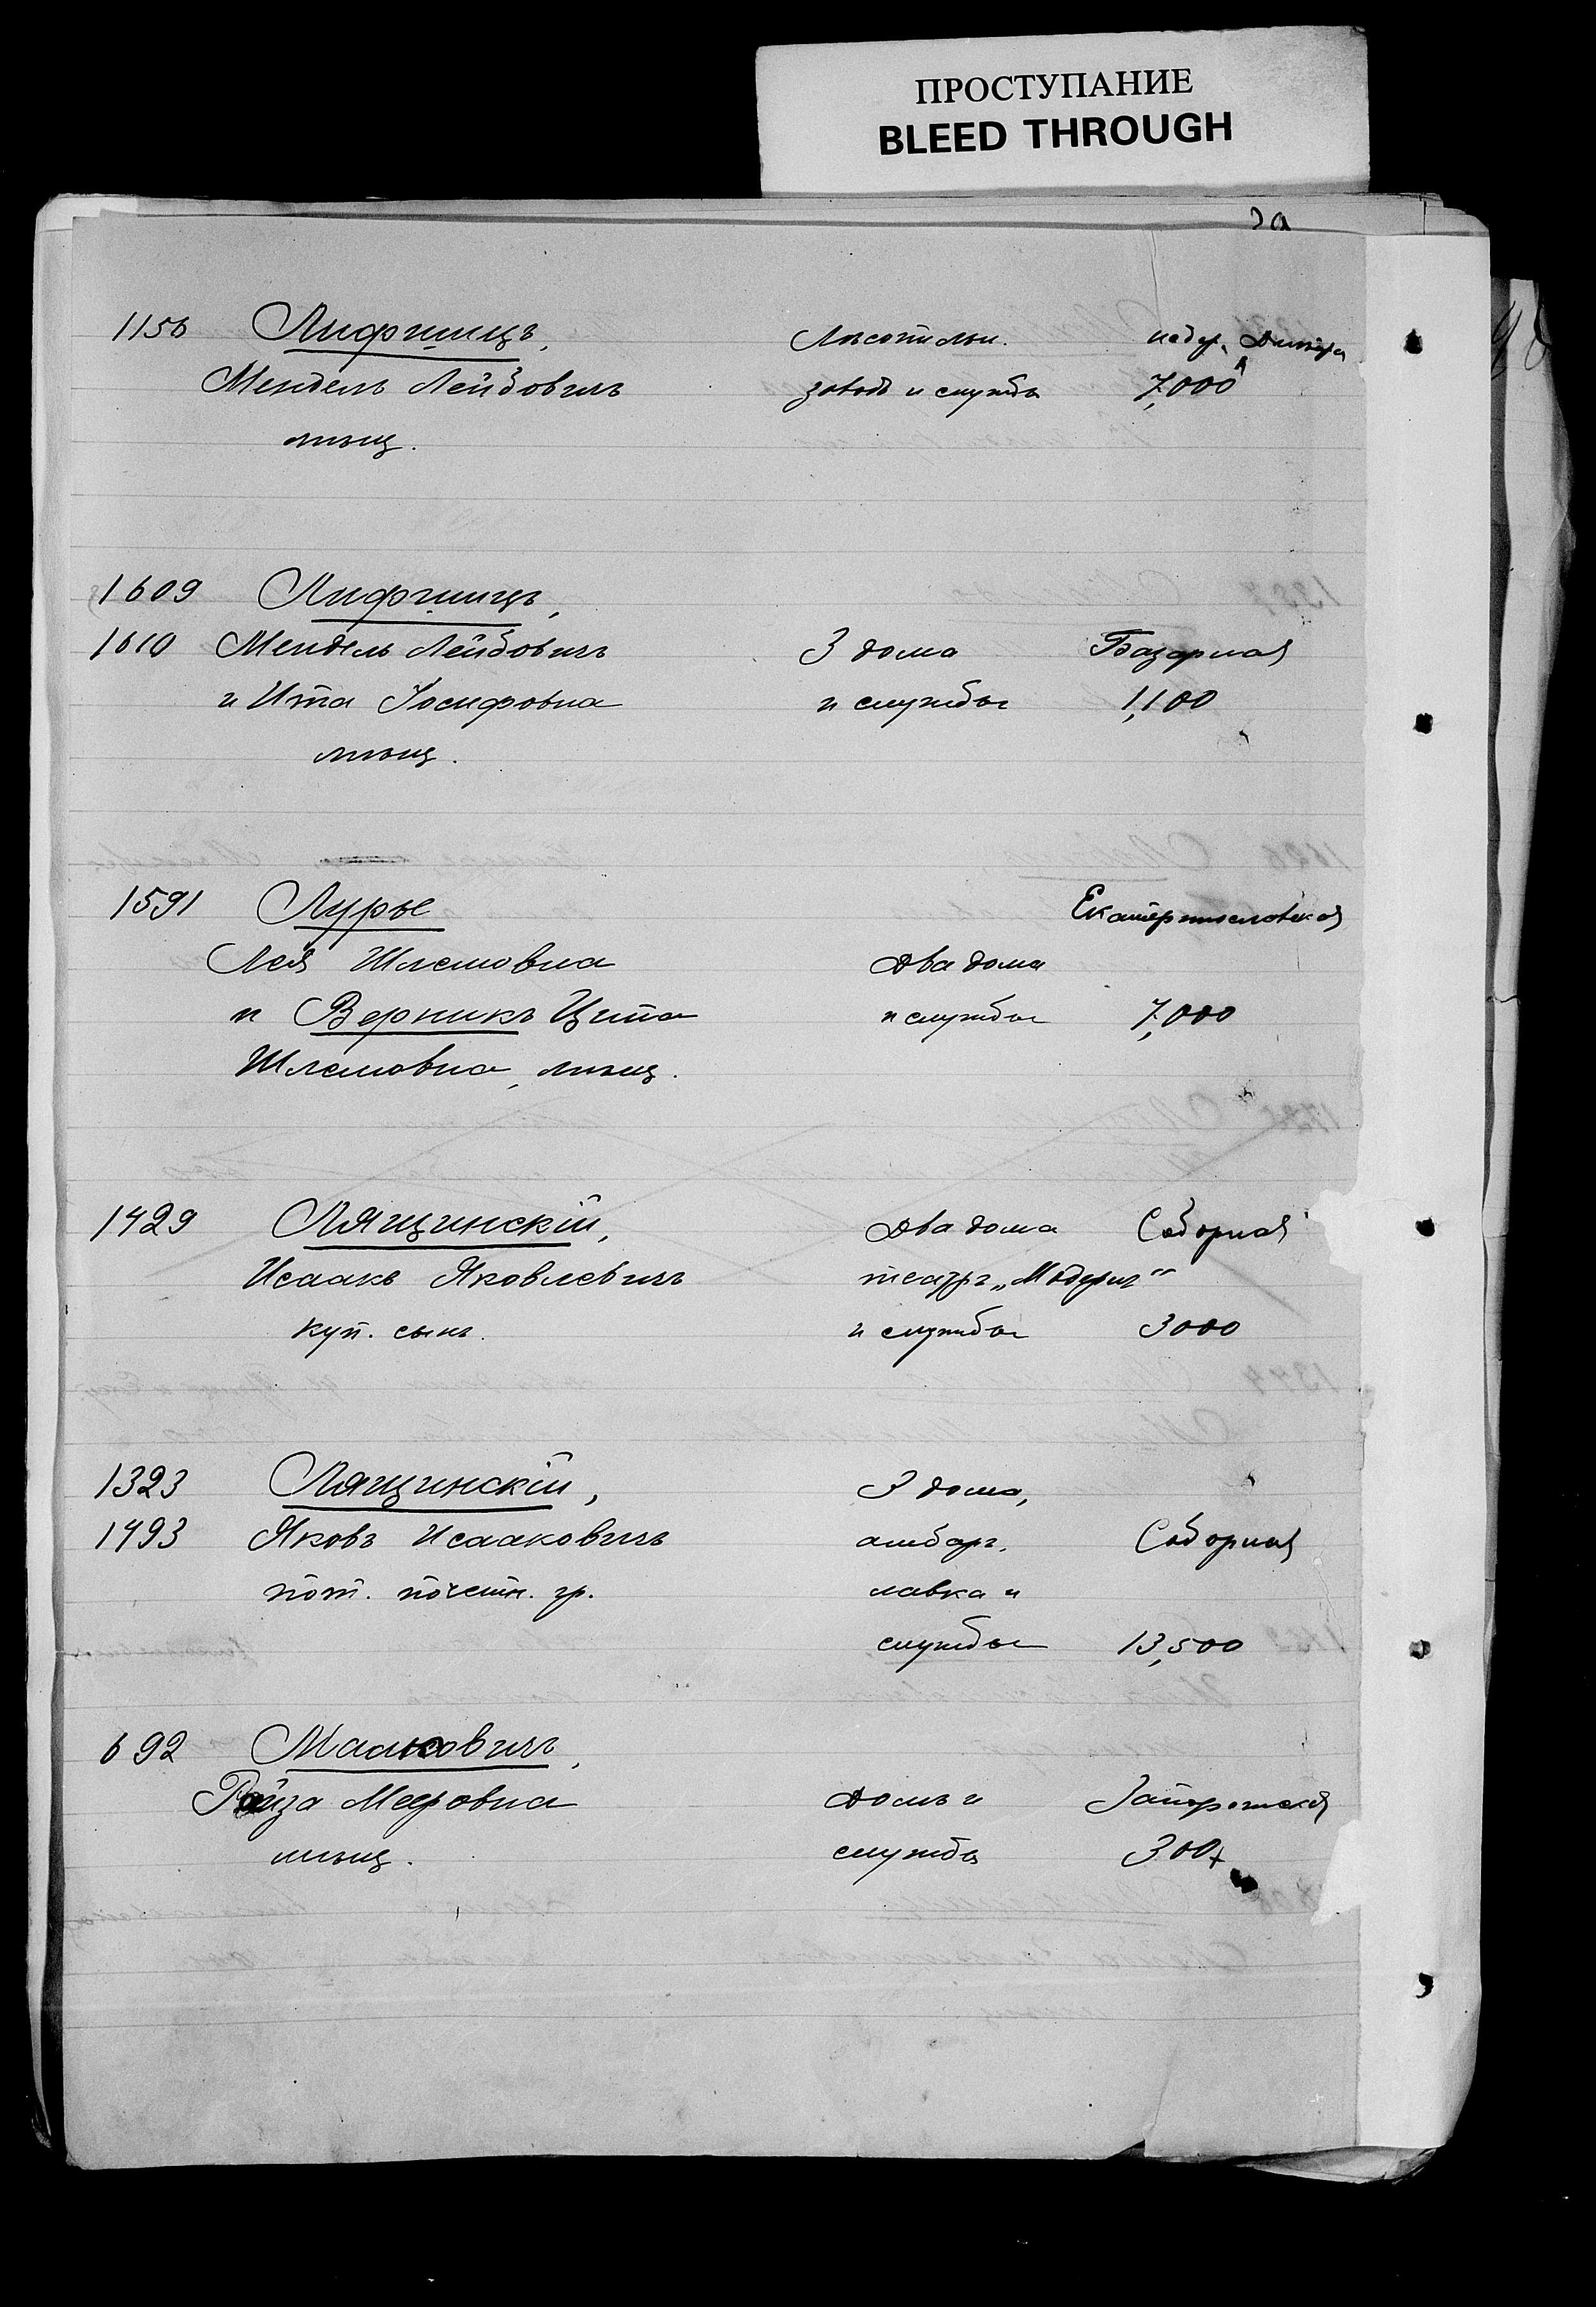 ПРОСТУПАНИЕ
BLEED THROUGH
1156 Лифшицъ, Лѣсопильн. надр. Днѣпра
Мендель Лейбовичъ заводъ и службы 7,000
мѣщ.
1609 Лифшицъ,
1610 Мендель Лейбовичъ 3 дома Базарная
и Ита Іосифовна и службы 1,100
мѣщ.
1591 Лурье Екатеринославская
Лея Шлемовна Два дома
и Верникъ Ципа и службы 7,000
Шлемовна, мѣщ.
1429 Лящинскій, Два дома Соборная
Исаакъ Яковлевичъ театръ „Модернъ“
куп. сынъ. и службы 3000
1323 Лящинскій, 3 дома,
1493 Яковъ Исааковичъ амбаръ, Соборная
пот. почетн. гр. лавка и
службы 13,500
692 Маиковичъ,
Рейза Мееровна Домъ и Запорожская
мѣщ. службы 300